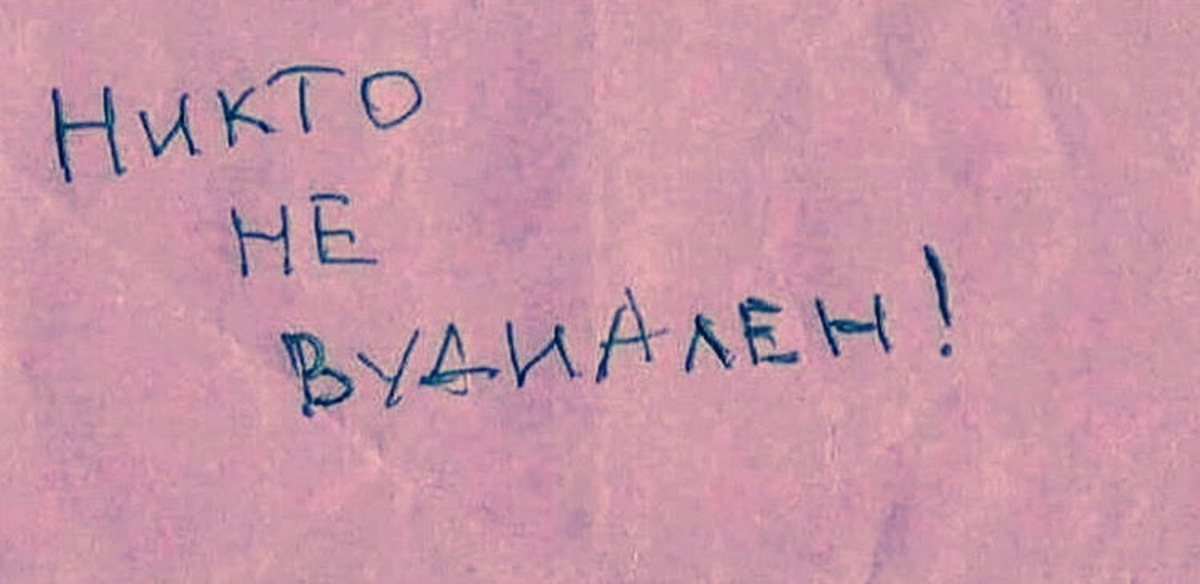 Никто
не
вудиален!